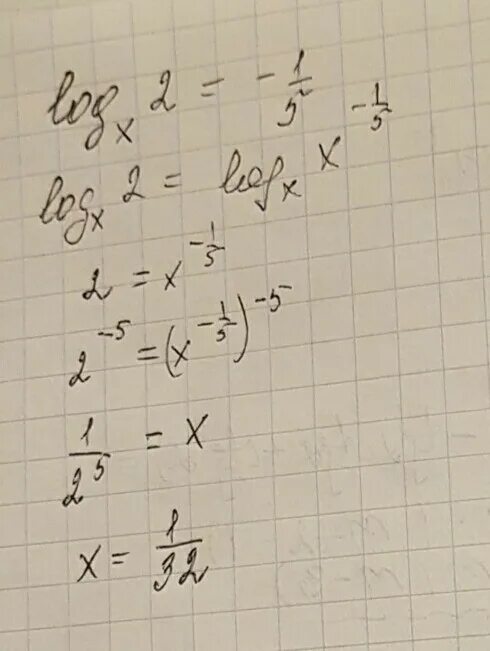 log_x 2 = -1/5
log_x 2 = log_x x^(-1/5)
2 = x^(-1/5)
2^(-5) = (x^(-1/5))^(-5)
1/2^5 = x
x = 1/32